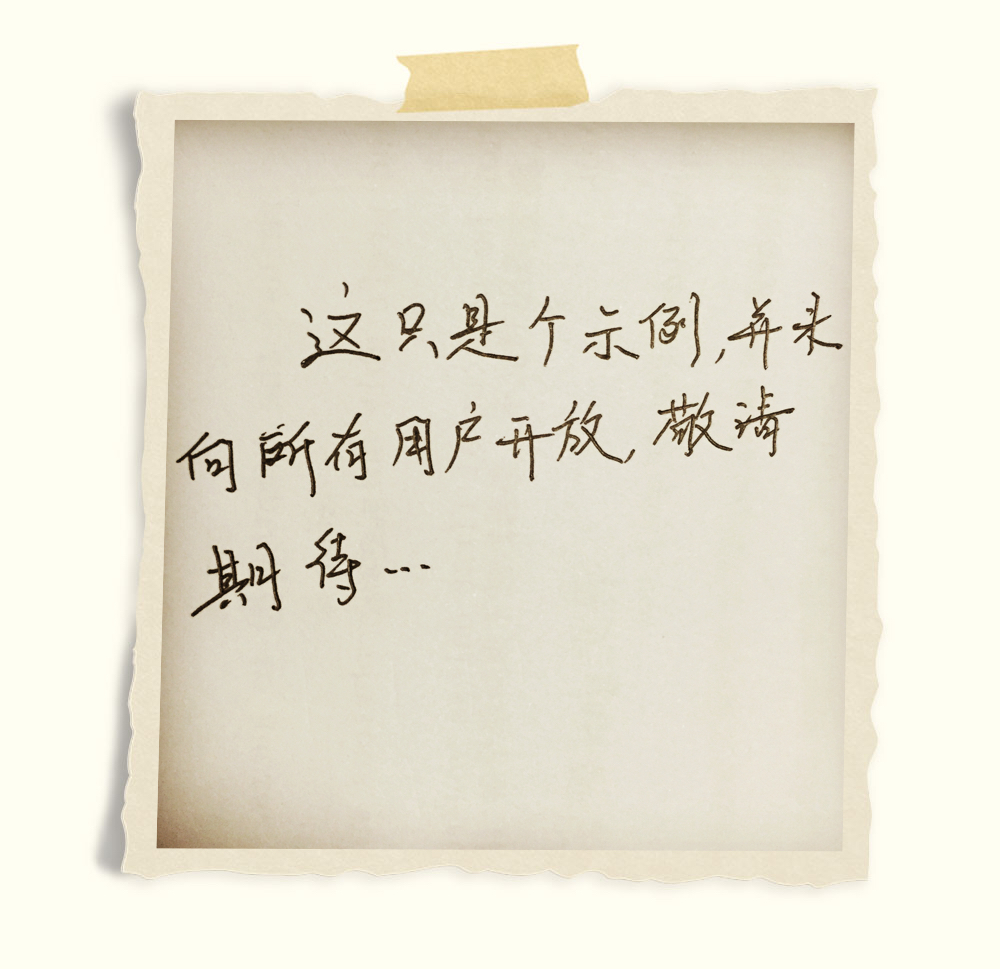 这只是个示例,并未
向所有用户开放,敬请
期待...